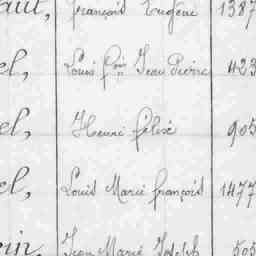 aut, François Eugène 1387
el, Louis fois Jean Pierre 423
el, Henri félix 905
el, Louis Marie françois 1477
ein, Jean Marie Joseph 505